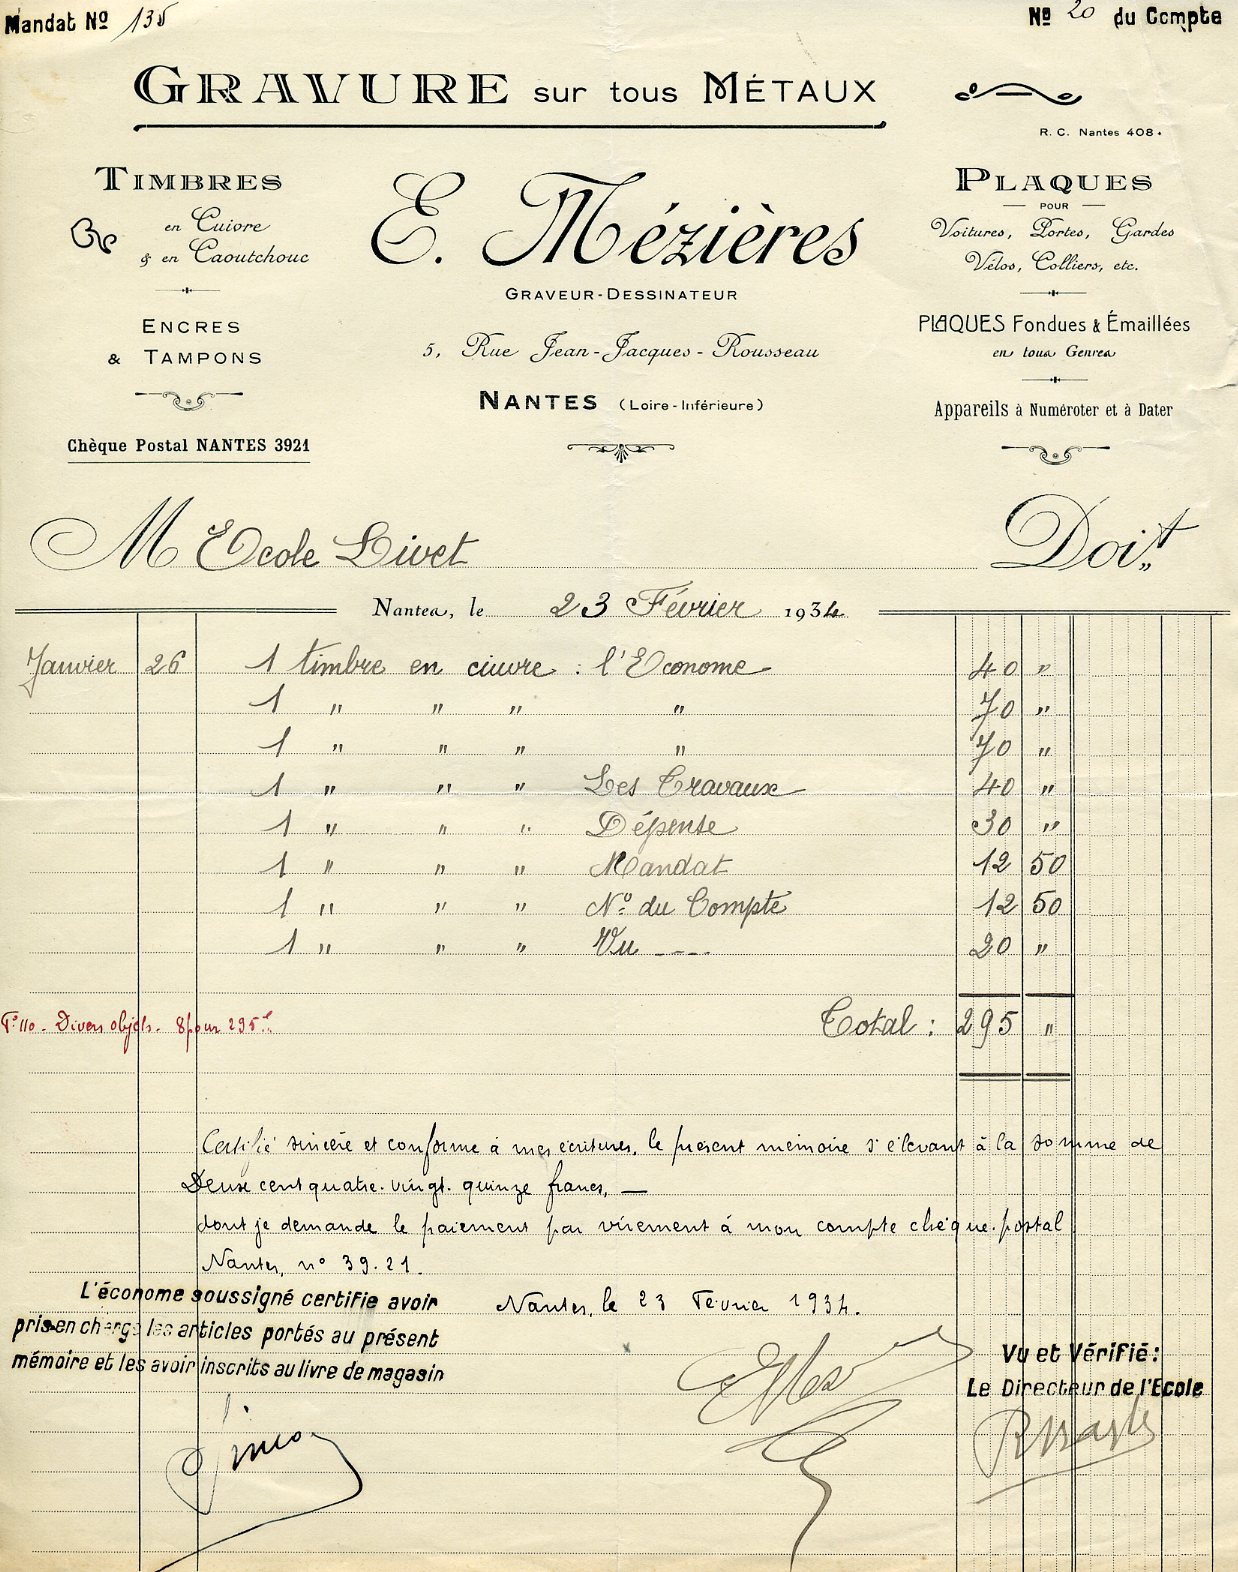 Mandat Nº 135
Nº 20 du Compte
GRAVURE sur tous MÉTAUX
R. C. Nantes 408.
TIMBRES
en Cuivre
& en Caoutchouc
ENCRES
& TAMPONS
Chèque Postal NANTES 3921
E. Mézières
GRAVEUR-DESSINATEUR
5, Rue Jean-Jacques-Rousseau
NANTES (Loire-Inférieure)
PLAQUES
POUR
Voitures, Portes, Gardes
Vélos, Colliers, etc.
PLAQUES Fondues & Émaillées
en tous Genres
Appareils à Numéroter et à Dater
M Ecole Livet Doit
Nantes, le 23 Février 1934
Janvier 26 1 timbre en cuivre : l'Econome 40 "
1 " " " " 70 "
1 " " " " 70 "
1 " " " Les Travaux 40 "
1 " " " Dépense 30 "
1 " " " Mandat 12 50
1 " " " Nº du Compte 12 50
1 " " " Vu ---- 20 "
Fº 110 - Divers objets - 8 pour 295 f.
Total : 295 "
Certifié sincère et conforme à mes écritures, le présent mémoire s'élevant à la somme de
Deux cent quatre-vingt-quinze francs, —
dont je demande le paiement par virement à mon compte chèque-postal
Nantes, nº 39.21.
Nantes, le 23 Février 1934.
L'économe soussigné certifie avoir
pris en charge les articles portés au présent
mémoire et les avoir inscrits au livre de magasin
Vu et Vérifié :
Le Directeur de l'Ecole